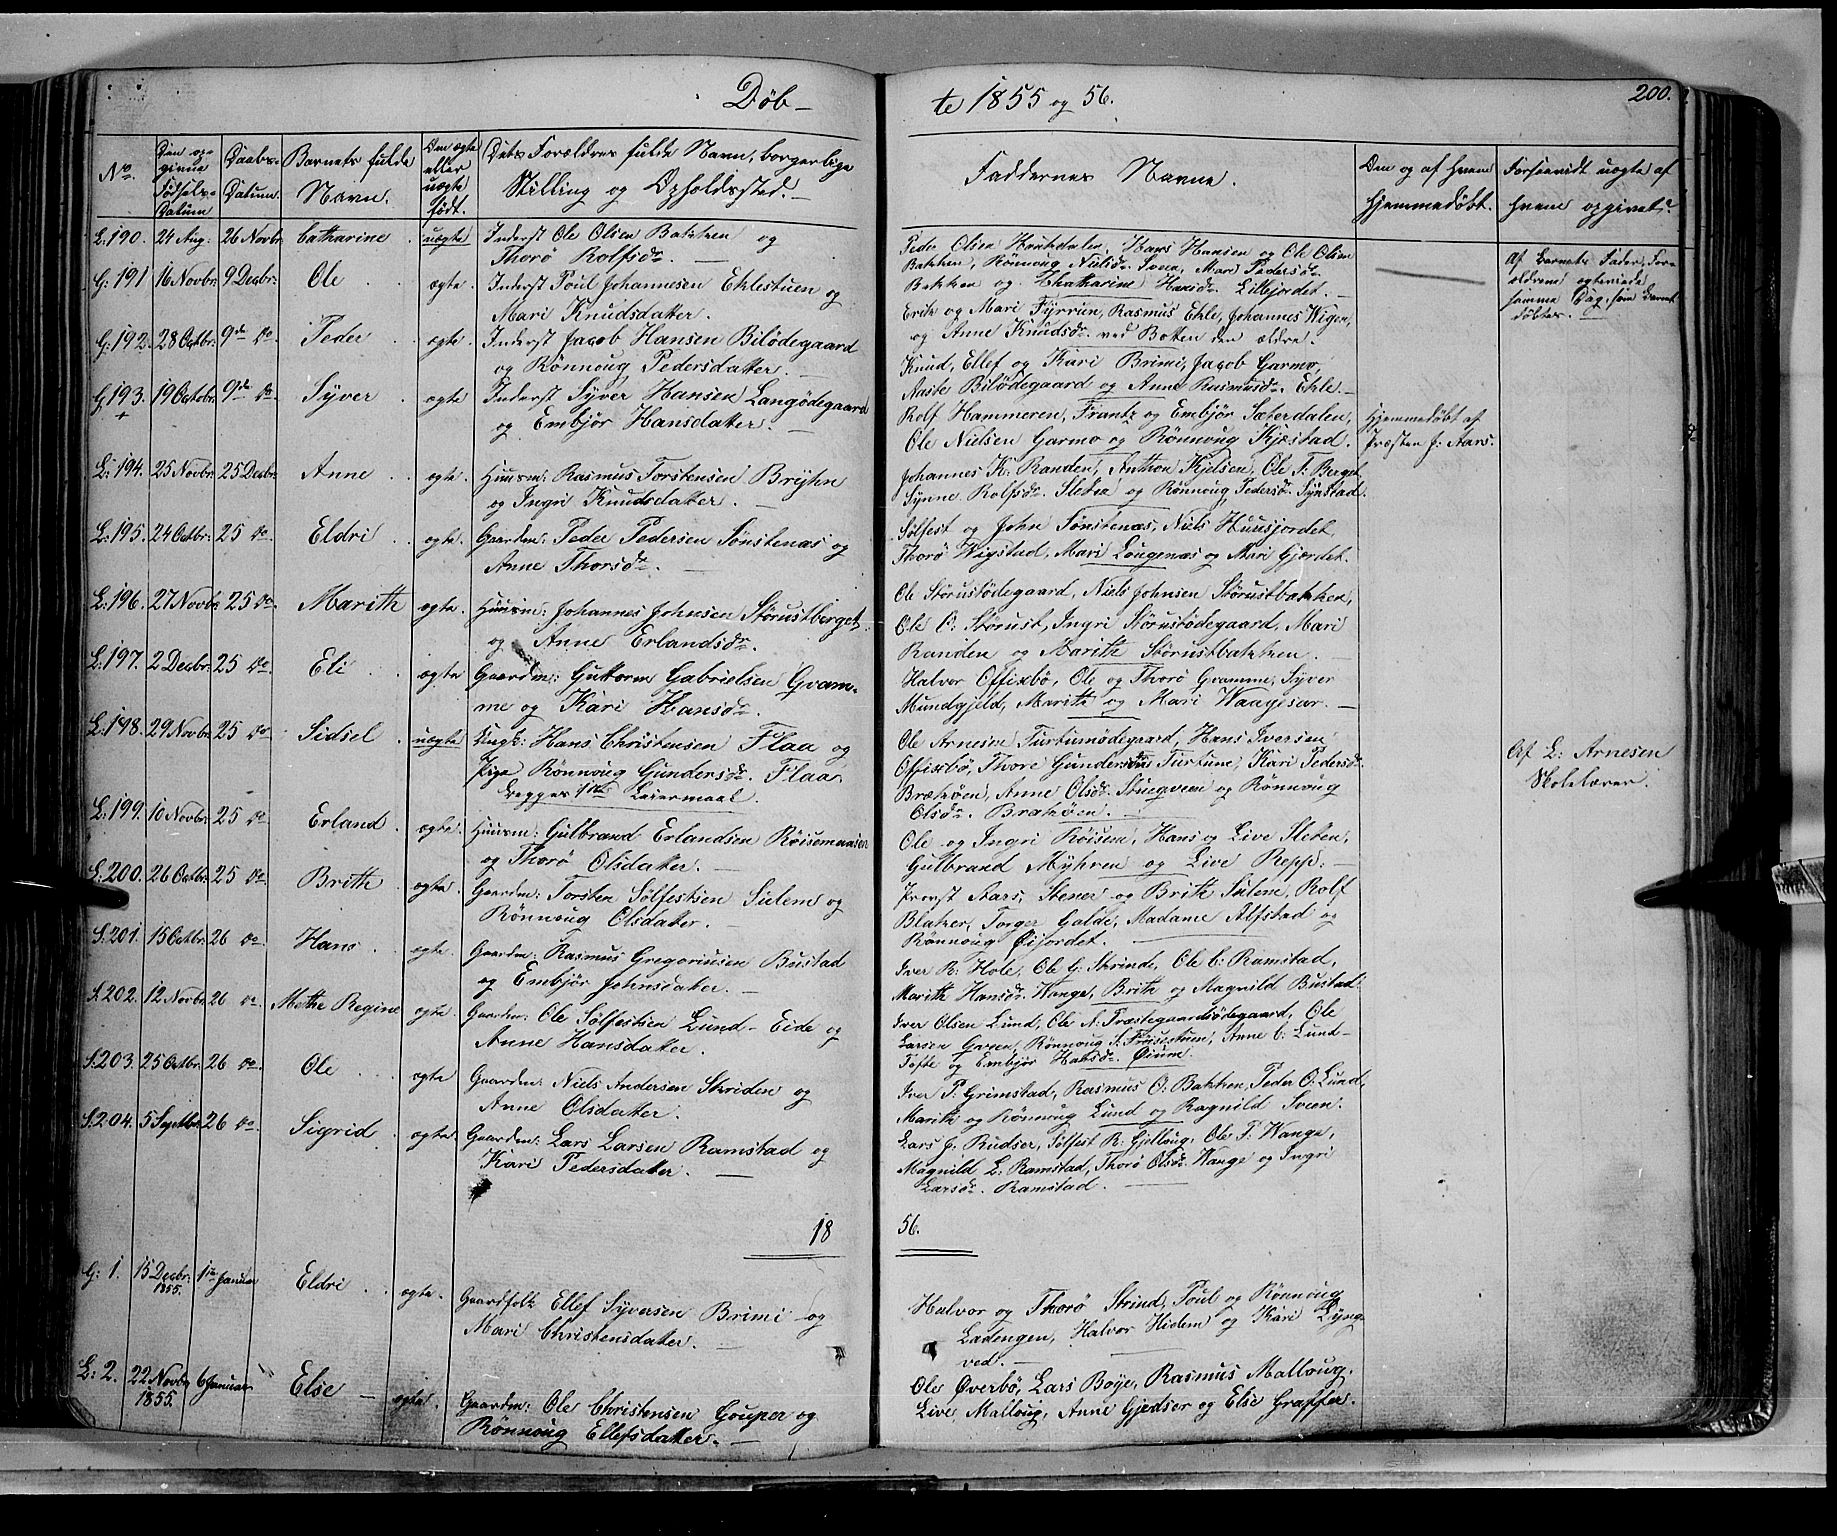 Døb-
te 1855 og 56.
200.
No.
Den op-
givne
Fødsels-
Datum
Daabs-
Datum.
Barnets fulde
Navn.
Om ægte
eller
uægte
født.
Dets Forældres fulde Navn, borgerlige
Stilling og Opholdssted.
Faddernes Navne.
Om og af hvem
hjemmedøbt.
Forsaavidt uægte af
hvem opgivet?
L: 190. 24 Aug: 26 Novbr. Catharine uægte Inderst Ole Olsen Bakken og
Thorø Rolfsdr.
Peder Olsen Haukdalen, Hans Hansen og Ole Olsen
Bakken, Rønnoug Nielsdr. Sveen, Mari Pedersdr.
Bakken og Chatharine Hansdr. Lillejordet.
Af Barnets Fader, For-
ældrene ægteviede
samme Dag, som Barnet
døbtes.
G: 191 16 Novbr. 9 Decbr: Ole ægte. Inderst Poul Johannesen Ehlestuen og
Mari Knudsdatter.
Erik og Mari Fyrrun, Rasmus Ehle, Johannes Wigen,
og Anne Knudsdr. ved Botten den ældre.
G: 192. 28 Octbr. 9de do. Peder ægte. Inderst Jacob Hansen Bilødegaard
og Rønnoug Pedersdatter.
Knud, Ellef og Kari Brimi, Jacob Garmo,
Aaste Bilødegaard og Anne Rasmusdr. Ehle.
G 193. 19 Octobr. 9de do. Syver ægte. Inderst Syver Hansen Langødegaard
+
og Embjør Hansdatter.
Rolf Hammeren, Frantz og Embjør Sæterdalen,
Ole Nielsen Garmo og Rønnoug Kjæstad.
Hjemmedøbt af
Præsten J: Aars.
L: 194. 25 Novbr. 25 Decbr. Anne ægte. Huusm: Rasmus Torstensen Bryhn
og Ingri Knudsdatter.
Johannes K: Randen, Anthon Kjelsen, Ole T: Berget
Synne Rolfsdr. Sletten og Rønnoug Pedersdr. Synstad.
L: 195. 24 Octbr. 25 do. Eldri ægte. Gaardm: Peder Pedersen Sønstenæs og
Anne Thorsdr.
Sølfest og John Sønstenæs, Niels Huusjordet,
Thorø Wigstad, Mari Lougenæs og Mari Gjærdet.
L: 196. 27 Novbr 25 do. Marith ægte. Huusm: Johannes Johnsen Størustberget
og Anne Erlandsdr.
Ole Størustødegaard, Niels Johnsen Størustbakken,
Ole O: Størust, Ingri Størustødegaard, Mari
Randen og Marith Størustbakken.
L: 197. 2 Decbr. 25 do. Eli ægte Gaardm: Guttorm Gabrielsen Gvam-
me og Kari Hansdr.
Halvor Offixbø, Ole og Thorø Gvamme, Syver
Mundgjeld, Marith og Mari Waagesar.
L: 198. 29 Novbr 25 do Sidsel uægte Ungk: Hans Christensen Flaa og
Pige Rønnoug Gundersdr. Flaa.
Begges 1ste Leiermaal.
Ole Arnesen Turtumødegaard, Hans Iversen
Offixbø, Thore Gundersdr. Turtune, Kari Pedersdr.
Brækøen, Anne Olsdr. Stuegveen og Rønnoug
Olsdr. Brækøen.
Af L: Arnesen
Skolelærer.
L: 199. 10 Novbr. 25 do. Erland ægte. Huusm: Gulbrand Erlandsen Røisemoansen
og Thorø Olsdatter.
Ole og Ingri Røisem, Hans og Live Sletten,
Gulbrand Myhren og Live Repp.
L: 200. 26 Octbr. 25 do Brith ægte. Gaardm: Torsten Sølfestsen Sulem og
Rønnoug Olsdatter.
Provst Aars, Stener og Brith Sulem, Rolf
Blakker, Torger Galde, Madame Alfstad og
Rønnoug Øijordet.
S: 201. 15 Octbr. 26 do. Hans ægte. Gaardm: Rasmus Gregoriusen Bustad
og Embjør Johnsdatter.
Iver R: Hole, Ole G: Skrinde, Ole C: Ramstad,
Marith Hansdr. Wange, Brith og Magnild Bustad.
S: 202. 12 Novbr. 26 do Mathe Regine ægte. Gaardm: Ole Sølfestsen Lund-Eide og
Anne Hansdatter.
Iver Olsen Lund, Ole A: Præstegaardsødegaard, Ole
Larsen Gveen, Rønnoug S: Frøisestuen, Anne C: Lund-
Tofte og Embjør Hansdr. Øium.
S: 203. 25 Octbr. 26 do. Ole ægte Gaardm: Niels Andersen Skriden og
Anne Olsdatter.
Iver P: Grimstad, Rasmus O: Bakken, Peder O: Lund,
Marith og Rønnoug Lund og Ragnild Sveen.
S: 204. 5 Septbr. 26 do Sigrid ægte. Gaardm: Lars Larsen Ramstad og
Kari Pedersdatter.
Lars J: Rudser, Sølfest R: Gjelloug, Ole T: Wange,
Magnild L: Ramstad, Thorø Olsdr. Wange og Ingri
Larsdr. Ramstad.
18
56.
G: 1. 15 Decbr. 1855. 1ste Januar Eldri ægte. Gaardfolk Ellef Syversen Brimi og
Mari Christensdatter.
Halvor og Thorø Strind, Poul og Rønnoug
Ladengen, Halvor Hielem og Kari Lyng-
ved.
L: 2. 22 Novbr 1855. 6 Januar Else ægte. Gaardm: Ole Christensen Gouper og
Rønnoug Ellefsdatter.
Ole Øverbø, Lars Boye, Rasmus Malloug.
Live Malloug, Anne Gjedser og Else Graffer.